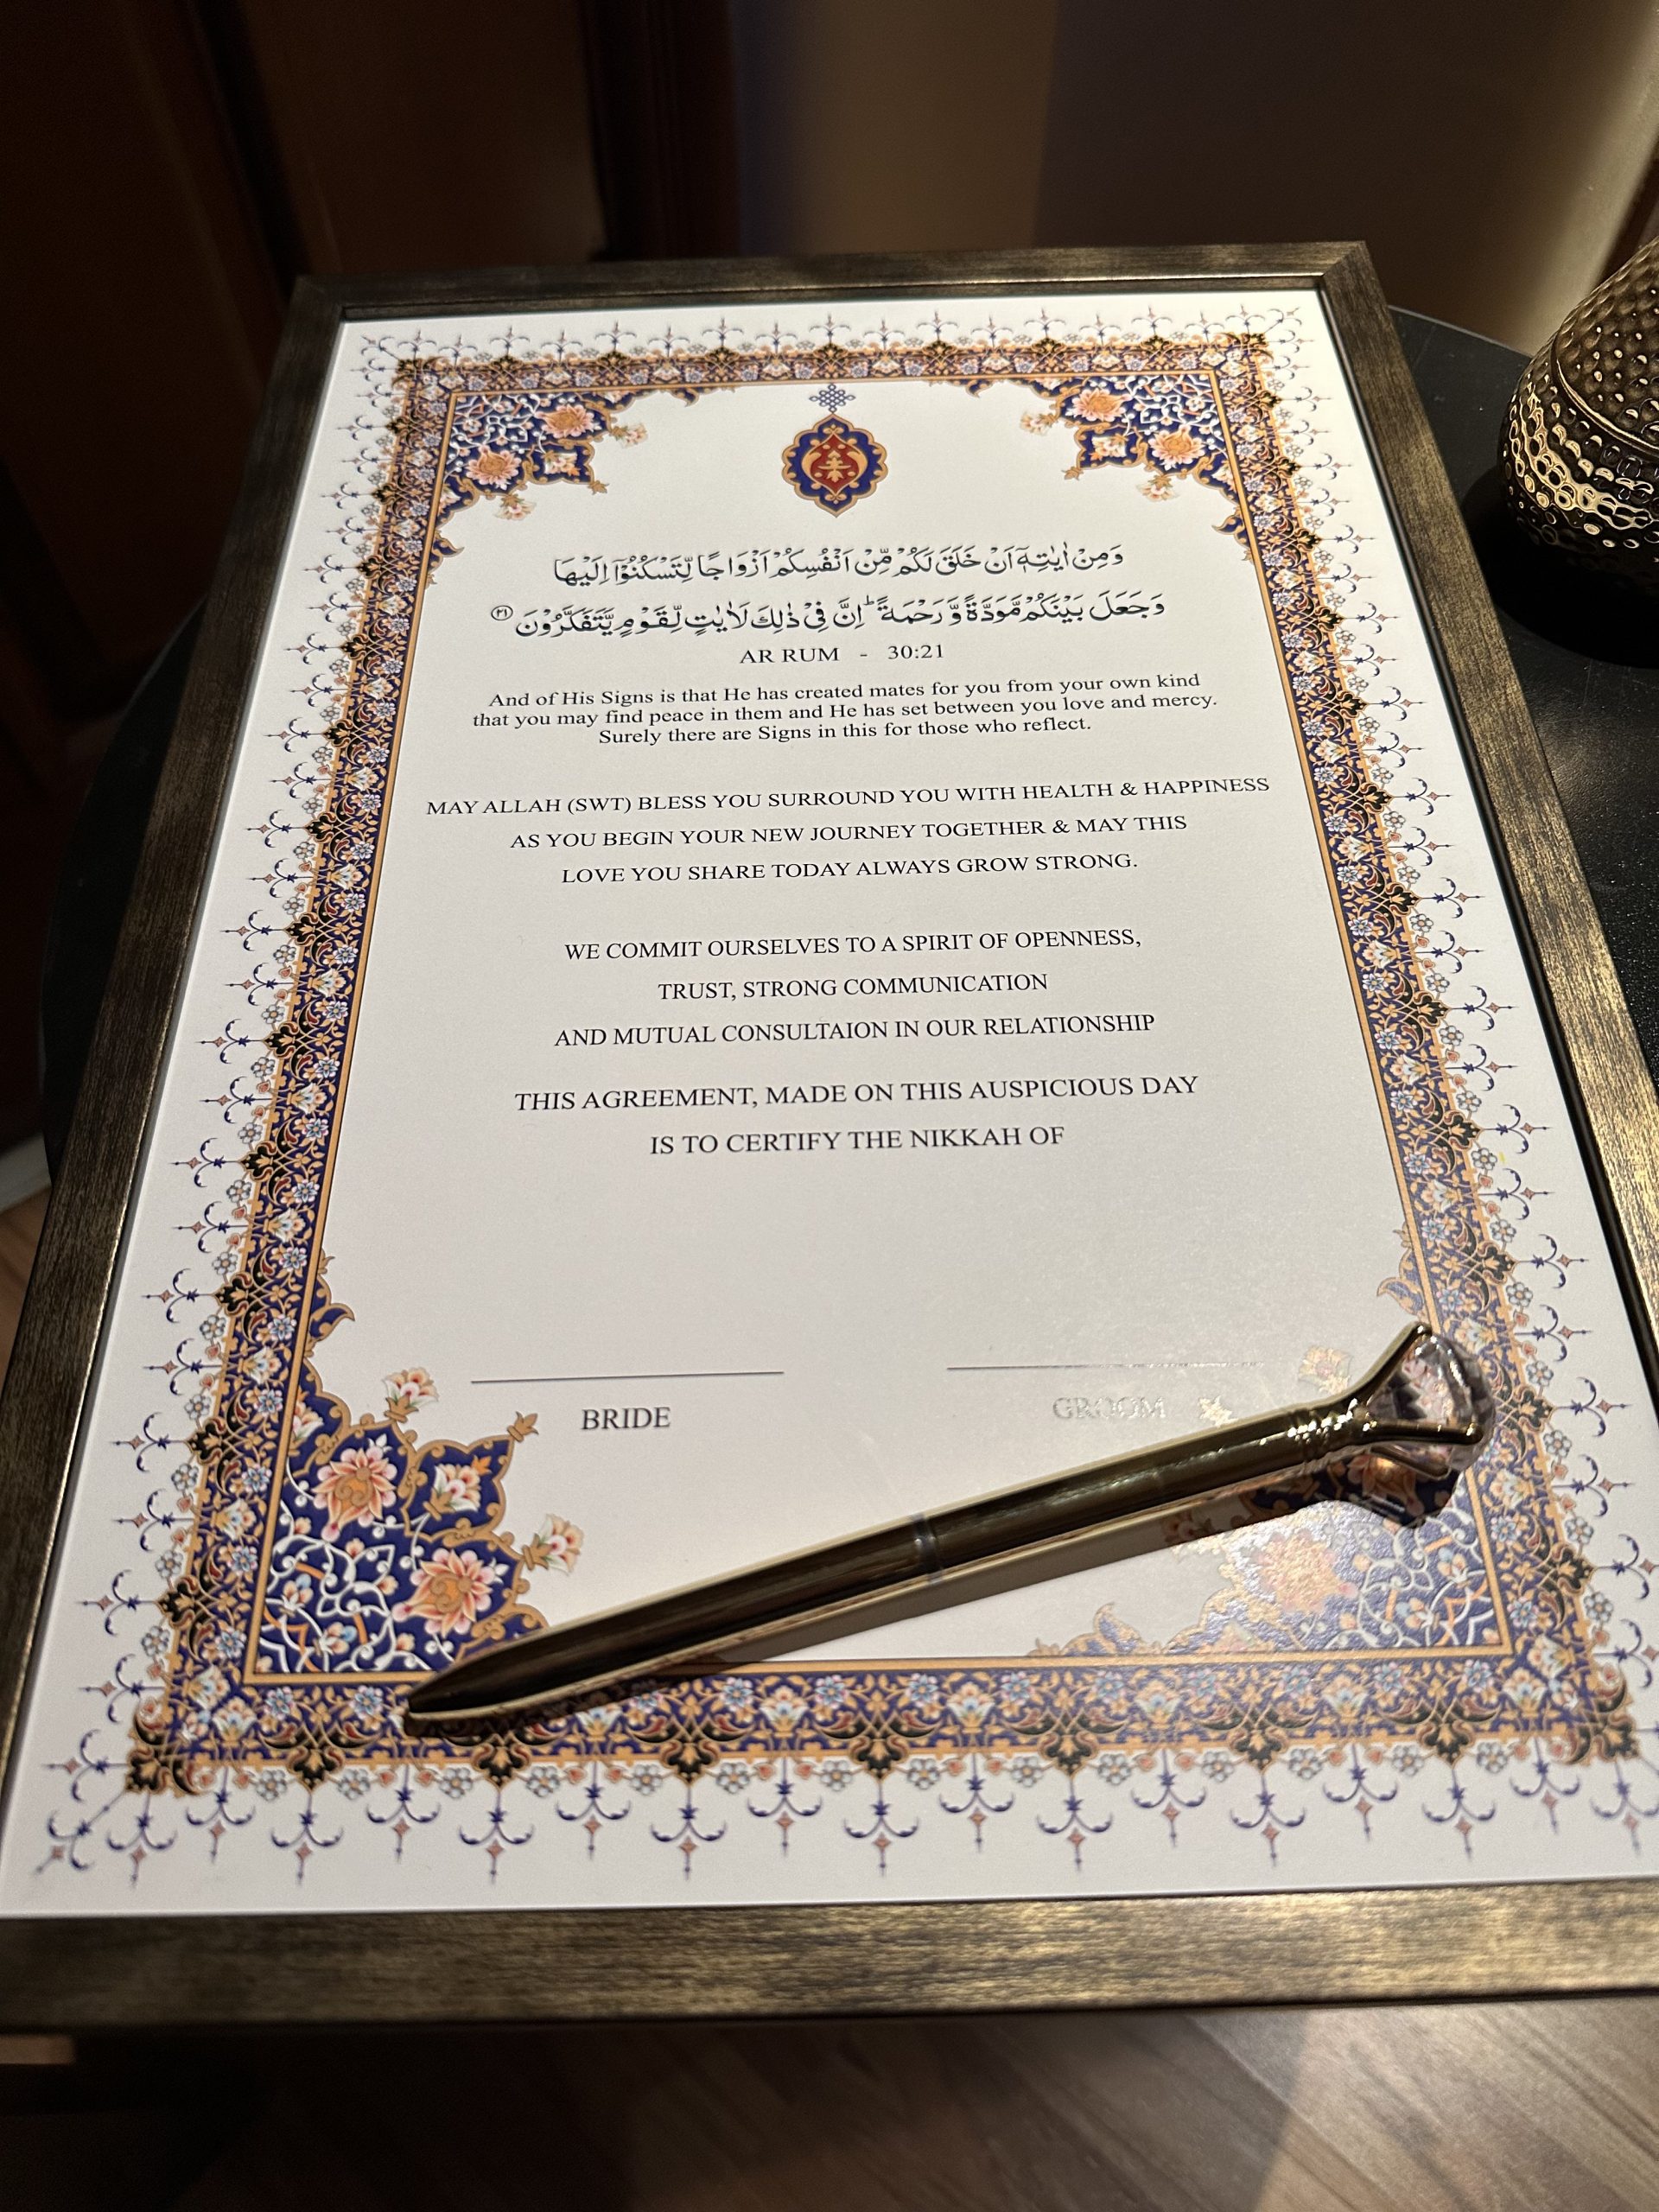 وَمِنْ اٰيٰتِهٖٓ اَنْ خَلَقَ لَكُمْ مِّنْ اَنْفُسِكُمْ اَزْوَاجًا لِّتَسْكُنُوْٓا اِلَيْهَا
وَجَعَلَ بَيْنَكُمْ مَّوَدَّةً وَّرَحْمَةً ؕ اِنَّ فِيْ ذٰلِكَ لَاٰيٰتٍ لِّقَوْمٍ يَّتَفَكَّرُوْنَ ٢١
AR RUM - 30:21
And of His Signs is that He has created mates for you from your own kind
that you may find peace in them and He has set between you love and mercy.
Surely there are Signs in this for those who reflect.
MAY ALLAH (SWT) BLESS YOU SURROUND YOU WITH HEALTH & HAPPINESS
AS YOU BEGIN YOUR NEW JOURNEY TOGETHER & MAY THIS
LOVE YOU SHARE TODAY ALWAYS GROW STRONG.
WE COMMIT OURSELVES TO A SPIRIT OF OPENNESS,
TRUST, STRONG COMMUNICATION
AND MUTUAL CONSULTAION IN OUR RELATIONSHIP
THIS AGREEMENT, MADE ON THIS AUSPICIOUS DAY
IS TO CERTIFY THE NIKKAH OF
BRIDE GROOM